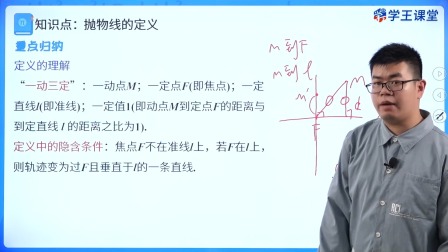 知识点：抛物线的定义
学王课堂
重点归纳
定义的理解
“一动三定”：一动点M；一定点F(即焦点)；一定
直线l(即准线)；一定值1(即动点M到定点F的距离与
到定直线 l 的距离之比为1).
定义中的隐含条件：焦点F不在准线l上，若F在l上，
则轨迹变为过F且垂直于l的一条直线.
m 到 F
m 到 l
m'
M
d
F